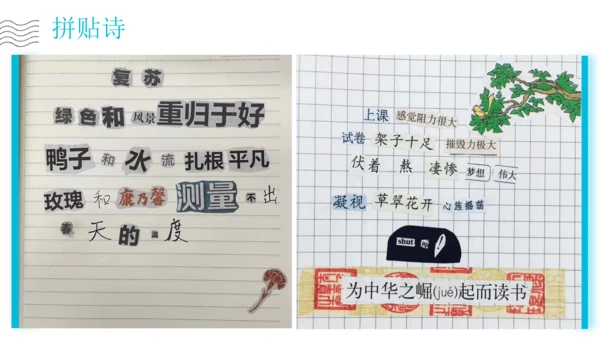 拼贴诗
复苏
绿色和风景重归于好
鸭子和水流扎根平凡
玫瑰和康乃馨测量不出
春天的温度
上课 感觉阻力很大
试卷 架子十足 摧毁力极大
伏着 熬 凄惨 梦想 伟大
凝视 草翠花开 心旌摇荡
shut up
为中华之崛(jué)起而读书